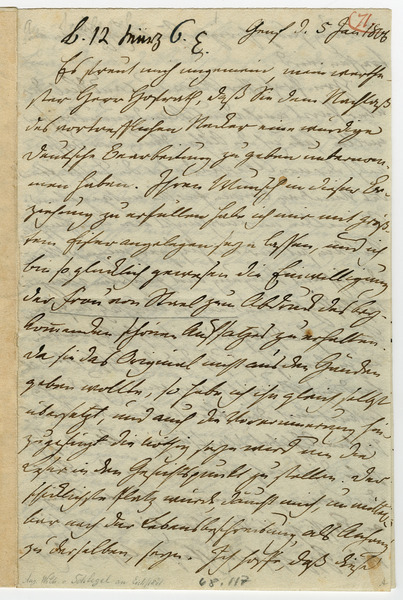 b. 12 März 6. E.
Genf d. 5 Jan 1806
Es freut mich ungemein, mein werthe-
ster Herr Hofrath, daß Sie dem Nachlaß
des vortrefflichen Necker eine würdige
deutsche Bearbeitung zu geben unternom-
men haben. Ihren Wunsch in dieser Be-
ziehung zu erfüllen habe ich mir mit größ-
tem Eifer angelegen seyn lassen, und ich
bin so glücklich gewesen die Einwilligung
der Frau von Stael zum Abdruck des bey-
kommenden schönen Aufsatzes zu erhalten.
Da sie das Original nicht aus den Händen
geben wollte, so habe ich ihn gleich selbst
übersetzt, und auch die Vorerinnerung hin-
zugefügt die nöthig seyn wird um die
Leser in den Gesichtspunkt zu stellen. Der
schicklichste Platz würde, däucht mich, unmittel-
bar nach der Lebensbeschreibung als Anhang
zu derselben, seyn. Ich hoffe, daß dieß
Aug. Wilh. v. Schlegel an
68.117